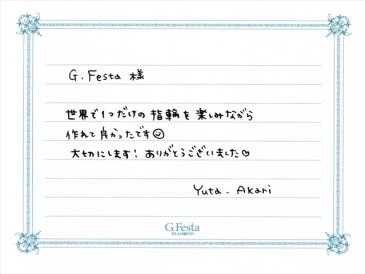 G.Festa 様
世界で1つだけの指輪を楽しみながら
作れて良かったです☺
大切にします！ありがとうございました♡
Yuta. Akari
G.Festa
DIAMOND